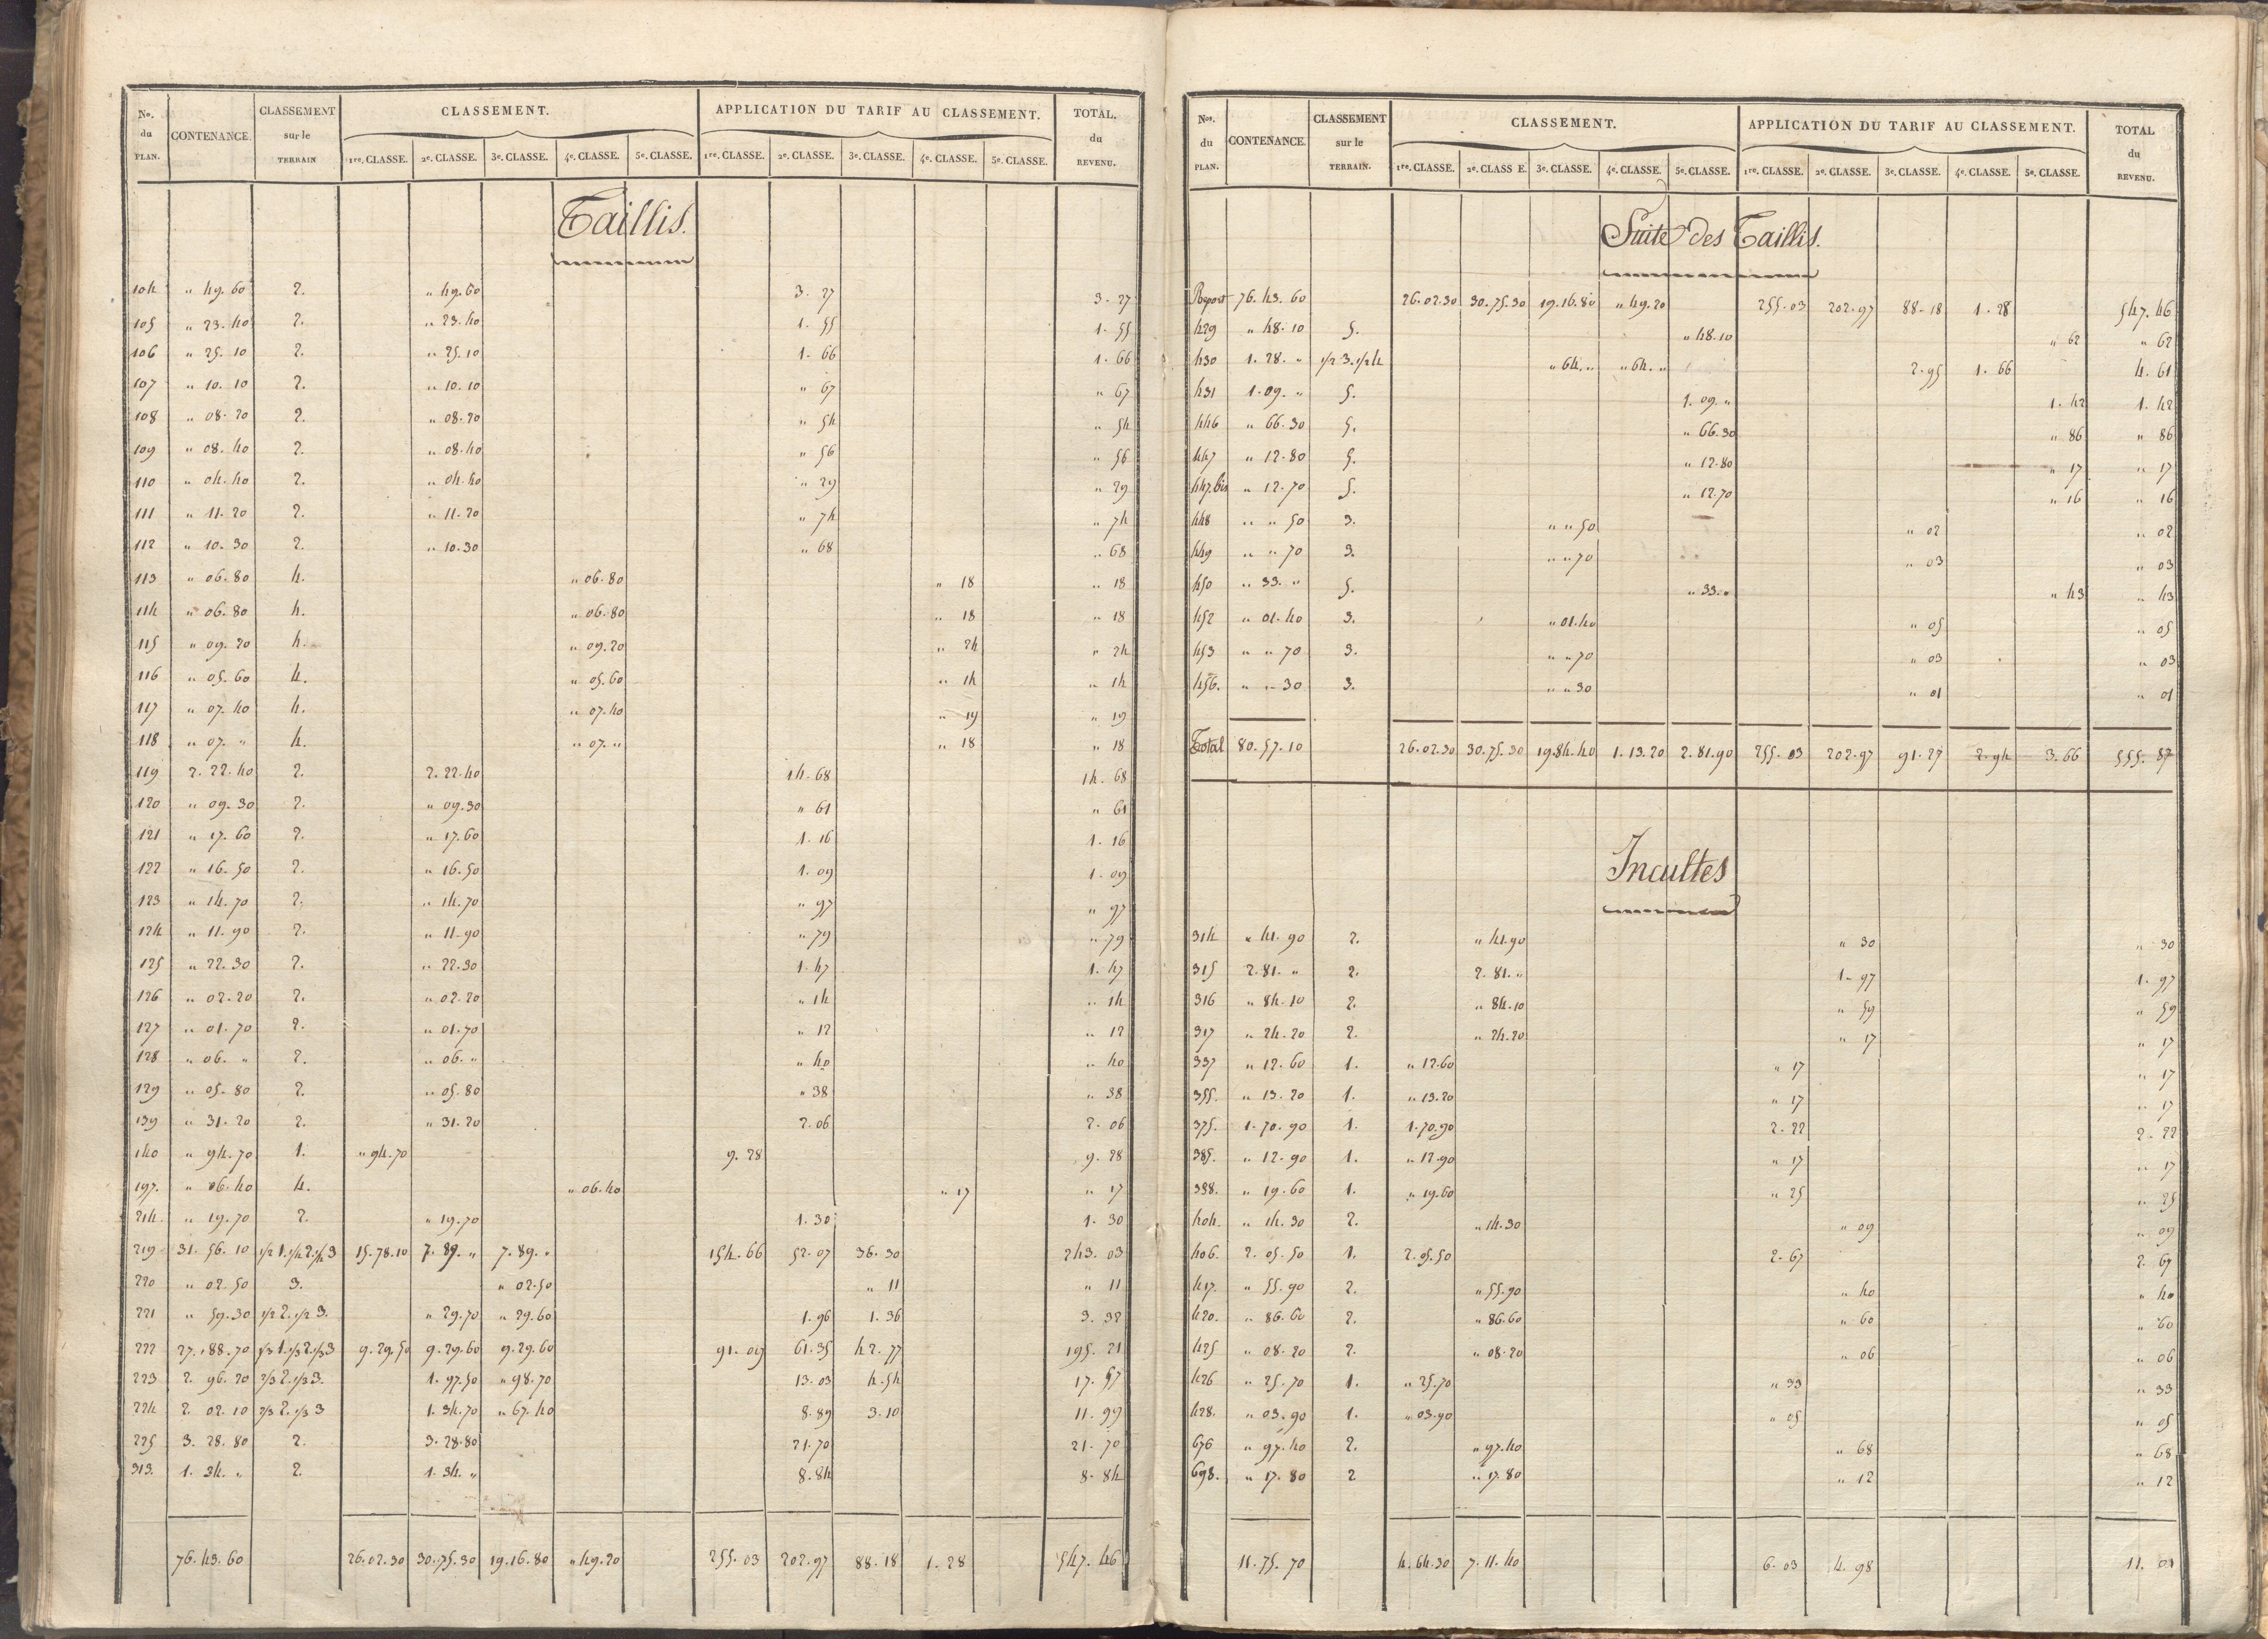 No. du PLAN. CONTENANCE. CLASSEMENT sur le TERRAIN CLASSEMENT. APPLICATION DU TARIF AU CLASSEMENT. TOTAL. du REVENU.
1re. CLASSE. 2e. CLASSE. 3e. CLASSE. 4e. CLASSE. 5e. CLASSE. 1re. CLASSE. 2e. CLASSE. 3e. CLASSE. 4e. CLASSE. 5e. CLASSE.
Taillis.
104 " 49. 60 2. " 49. 60 3. 27 3. 27
105 " 23. 40 2. " 23. 40 1. 55 1. 55
106 " 25. 10 2. " 25. 10 1. 66 1. 66
107 " 10. 10 2. " 10. 10 " 67 " 67
108 " 08. 20 2. " 08. 20 " 54 " 54
109 " 08. 40 2. " 08. 40 " 56 " 56
110 " 04. 40 2. " 04. 40 " 29 " 29
111 " 11. 20 2. " 11. 20 " 74 " 74
112 " 10. 30 2. " 10. 30 " 68 " 68
113 " 06. 80 4. " 06. 80 " 18 " 18
114 " 06. 80 4. " 06. 80 " 18 " 18
115 " 09. 20 4. " 09. 20 " 24 " 24
116 " 05. 60 4. " 05. 60 " 14 " 14
117 " 07. 40 4. " 07. 40 " 19 " 19
118 " 07. " 4. " 07. " " 18 " 18
119 2. 22. 40 2. 2. 22. 40 14. 68 14. 68
120 " 09. 30 2. " 09. 30 " 61 " 61
121 " 17. 60 2. " 17. 60 1. 16 1. 16
122 " 16. 50 2. " 16. 50 1. 09 1. 09
123 " 14. 70 2. " 14. 70 " 97 " 97
124 " 11. 90 2. " 11. 90 " 79 " 79
125 " 22. 30 2. " 22. 30 1. 47 1. 47
126 " 02. 20 2. " 02. 20 " 14 " 14
127 " 01. 70 2. " 01. 70 " 12 " 12
128 " 06. " 2. " 06. " " 40 " 40
129 " 05. 80 2. " 05. 80 " 38 " 38
139 " 31. 20 2. " 31. 20 2. 06 2. 06
140 " 94. 70 1. " 94. 70 9. 28 9. 28
197. " 06. 40 4. " 06. 40 " 17 " 17
214. " 19. 70 2. " 19. 70 1. 30 1. 30
219 31. 56. 10 1/2 1. 1/4 2. 1/4 3 15. 78. 10 7. 89. " 7. 89. " 154. 66 52. 07 36. 30 243. 03
220 " 02. 50 3. " 02. 50 " 11 " 11
221 " 59. 30 1/2 2. 1/2 3. " 29. 70 " 29. 60 1. 96 1. 36 3. 32
222 27. 88. 70 1/3 1. 1/3 2. 1/3 3 9. 29. 50 9. 29. 60 9. 29. 60 91. 09 61. 35 42. 77 195. 21
223 2. 96. 20 2/3 2. 1/3 3. 1. 97. 50 " 98. 70 13. 03 4. 54 17. 57
224 2. 02. 10 2/3 2. 1/3 3 1. 34. 70 " 67. 40 8. 89 3. 10 11. 99
225 3. 28. 80 2. 3. 28. 80 21. 70 21. 70
313. 1. 34. " 2. 1. 34. " 8. 84 8. 84
76. 43. 60 26. 02. 30 30. 75. 30 19. 16. 80 " 49. 20 255. 03 202. 97 88. 18 1. 28 547. 46
Nos. du PLAN. CONTENANCE. CLASSEMENT sur le TERRAIN. CLASSEMENT. APPLICATION DU TARIF AU CLASSEMENT. TOTAL du REVENU.
1re. CLASSE. 2e. CLASS E. 3e. CLASSE. 4e. CLASSE. 5e. CLASSE. 1re. CLASSE. 2e. CLASSE. 3e. CLASSE. 4e. CLASSE. 5e. CLASSE.
Suite des Taillis.
Report 76. 43. 60 26. 02. 30 30. 75. 30 19. 16. 80 " 49. 20 255. 03 202. 97 88. 18 1. 28 547. 46
429 " 48. 10 5. " 48. 10 " 62 " 62
430 1. 28. " 1/2 3. 1/2 4 " 64. " " 64. " 2. 95 1. 66 4. 61
431 1. 09. " 5. 1. 09. " 1. 42 1. 42
446 " 66. 30 5. " 66. 30 " 86 " 86
447 " 12. 80 5. " 12. 80 " 17 " 17
447. bis " 12. 70 5. " 12. 70 " 16 " 16
448 " " 50 3. " " 50 " 02 " 02
449 " " 70 3. " " 70 " 03 " 03
450 " 33. " 5. " 33. " " 43 " 43
452 " 01. 40 3. " 01. 40 " 05 " 05
453 " " 70 3. " " 70 " 03 " 03
456. " " 30 3. " " 30 " 01 " 01
Total 80. 57. 10 26. 02. 30 30. 75. 30 19. 84. 40 1. 13. 20 2. 81. 90 255. 03 202. 97 91. 27 2. 94 3. 66 555. 87
Incultes
314 " 41. 90 2. " 41. 90 " 30 " 30
315 2. 81. " 2. 2. 81. " 1. 97 1. 97
316 " 84. 10 2. " 84. 10 " 59 " 59
317 " 24. 20 2. " 24. 20 " 17 " 17
337 " 12. 60 1. " 12. 60 " 17 " 17
355. " 13. 20 1. " 13. 20 " 17 " 17
375. 1. 70. 90 1. 1. 70. 90 2. 22 2. 22
385. " 12. 90 1. " 12. 90 " 17 " 17
398. " 19. 60 1. " 19. 60 " 25 " 25
404. " 14. 30 2. " 14. 30 " 09 " 09
406. 2. 05. 50 1. 2. 05. 50 2. 67 2. 67
417. " 55. 90 2. " 55. 90 " 40 " 40
420. " 86. 60 2. " 86. 60 " 60 " 60
425 " 08. 20 2. " 08. 20 " 06 " 06
426 " 25. 70 1. " 25. 70 " 33 " 33
428. " 03. 90 1. " 03. 90 " 05 " 05
676 " 97. 40 2. " 97. 40 " 68 " 68
698. " 17. 80 2 " 17. 80 " 12 " 12
11. 75. 70 4. 64. 30 7. 11. 40 6. 03 4. 98 11. 01